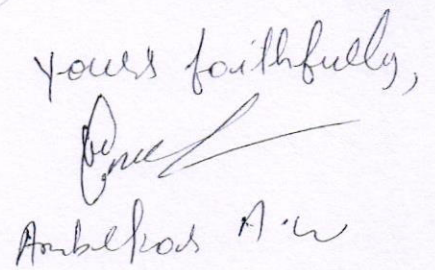 Yours faithfully,
Ambekar A.W